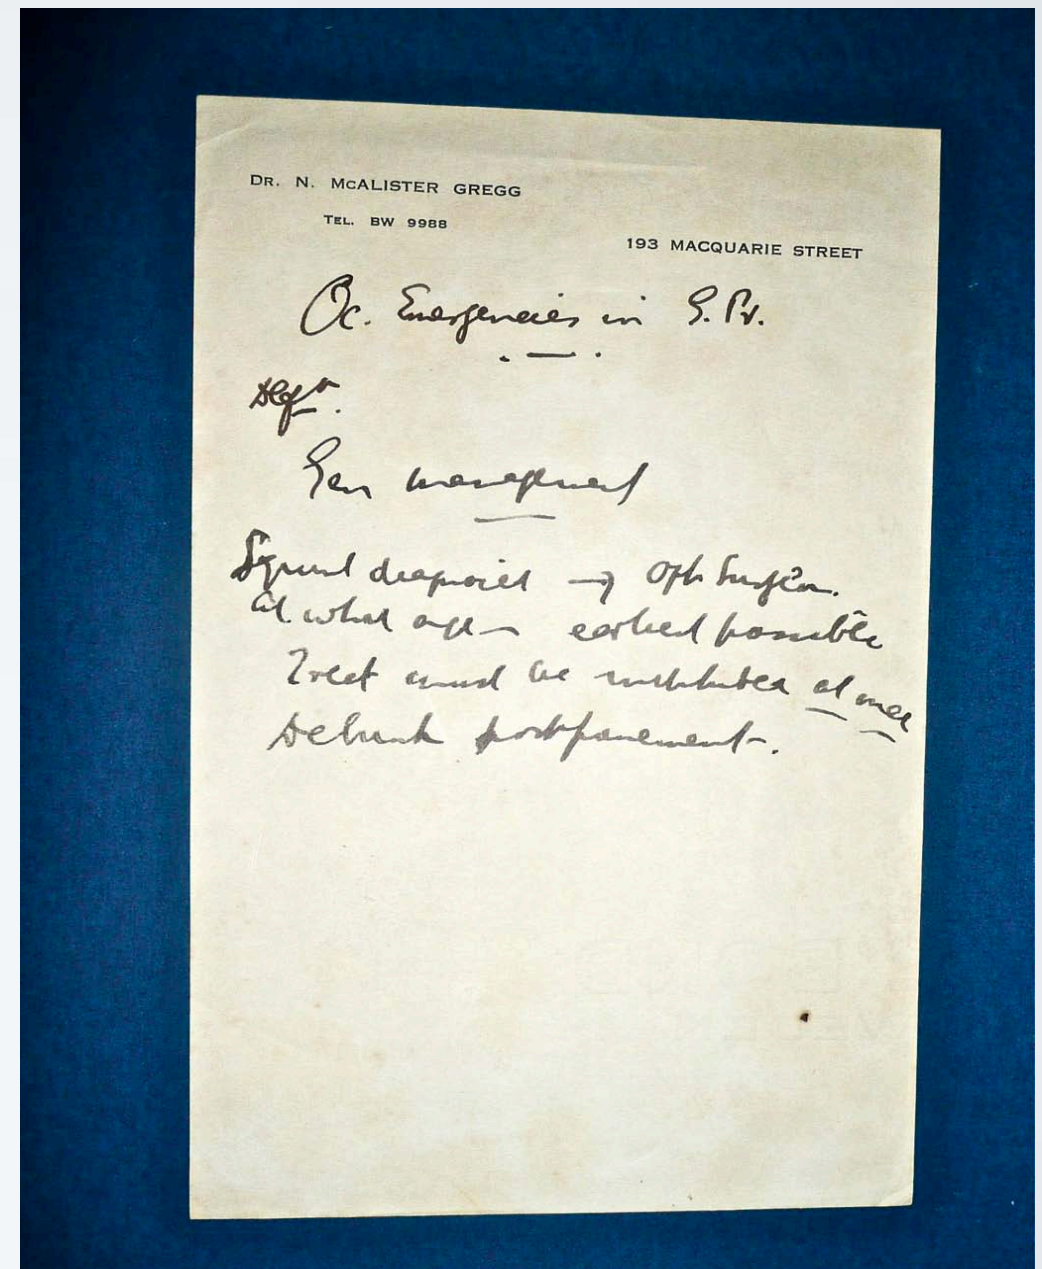 DR. N. McALISTER GREGG
TEL. BW 9988
193 MACQUARIE STREET
Oc. Emergencies in G. Pr.
Defn.
Gen management
Squint diagnosed → Oph Surgeon.
At what age – earliest possible
Treat must be instituted at once
Debunk postponement.